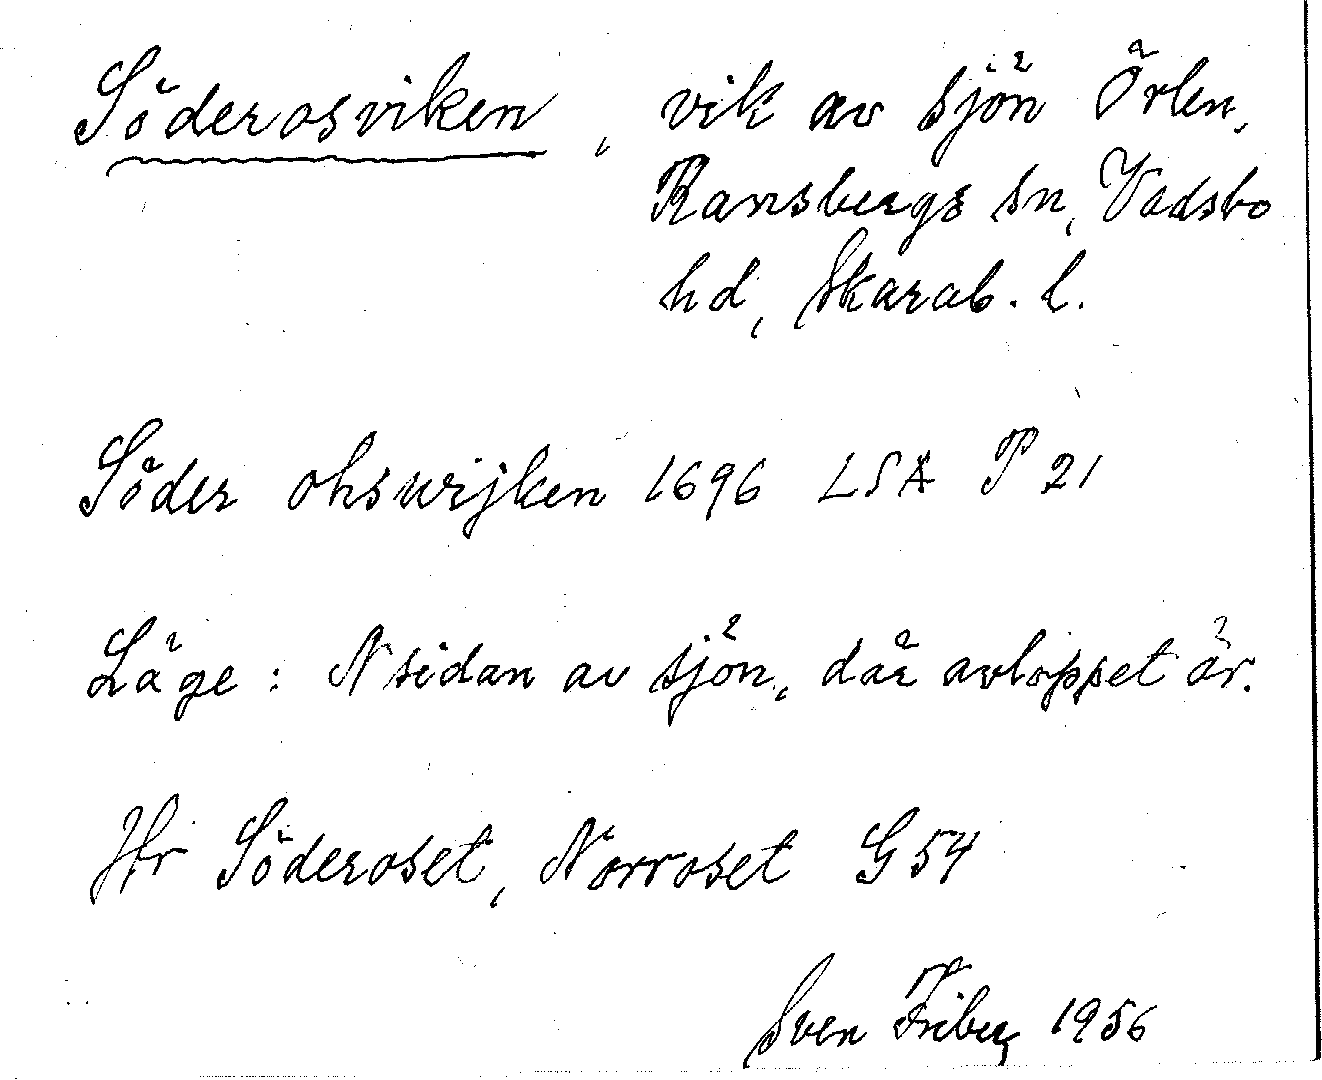 Söderosviken, vik av sjön Örlen,
Ransbergs sn, Vadsbo
hd, Skarab. l.
Söder ohswijken 1696 LSA P 21
Läge: N sidan av sjön, där avloppet är.
Jfr Söderoset, Norroset G 54
Sven Friberg 1956